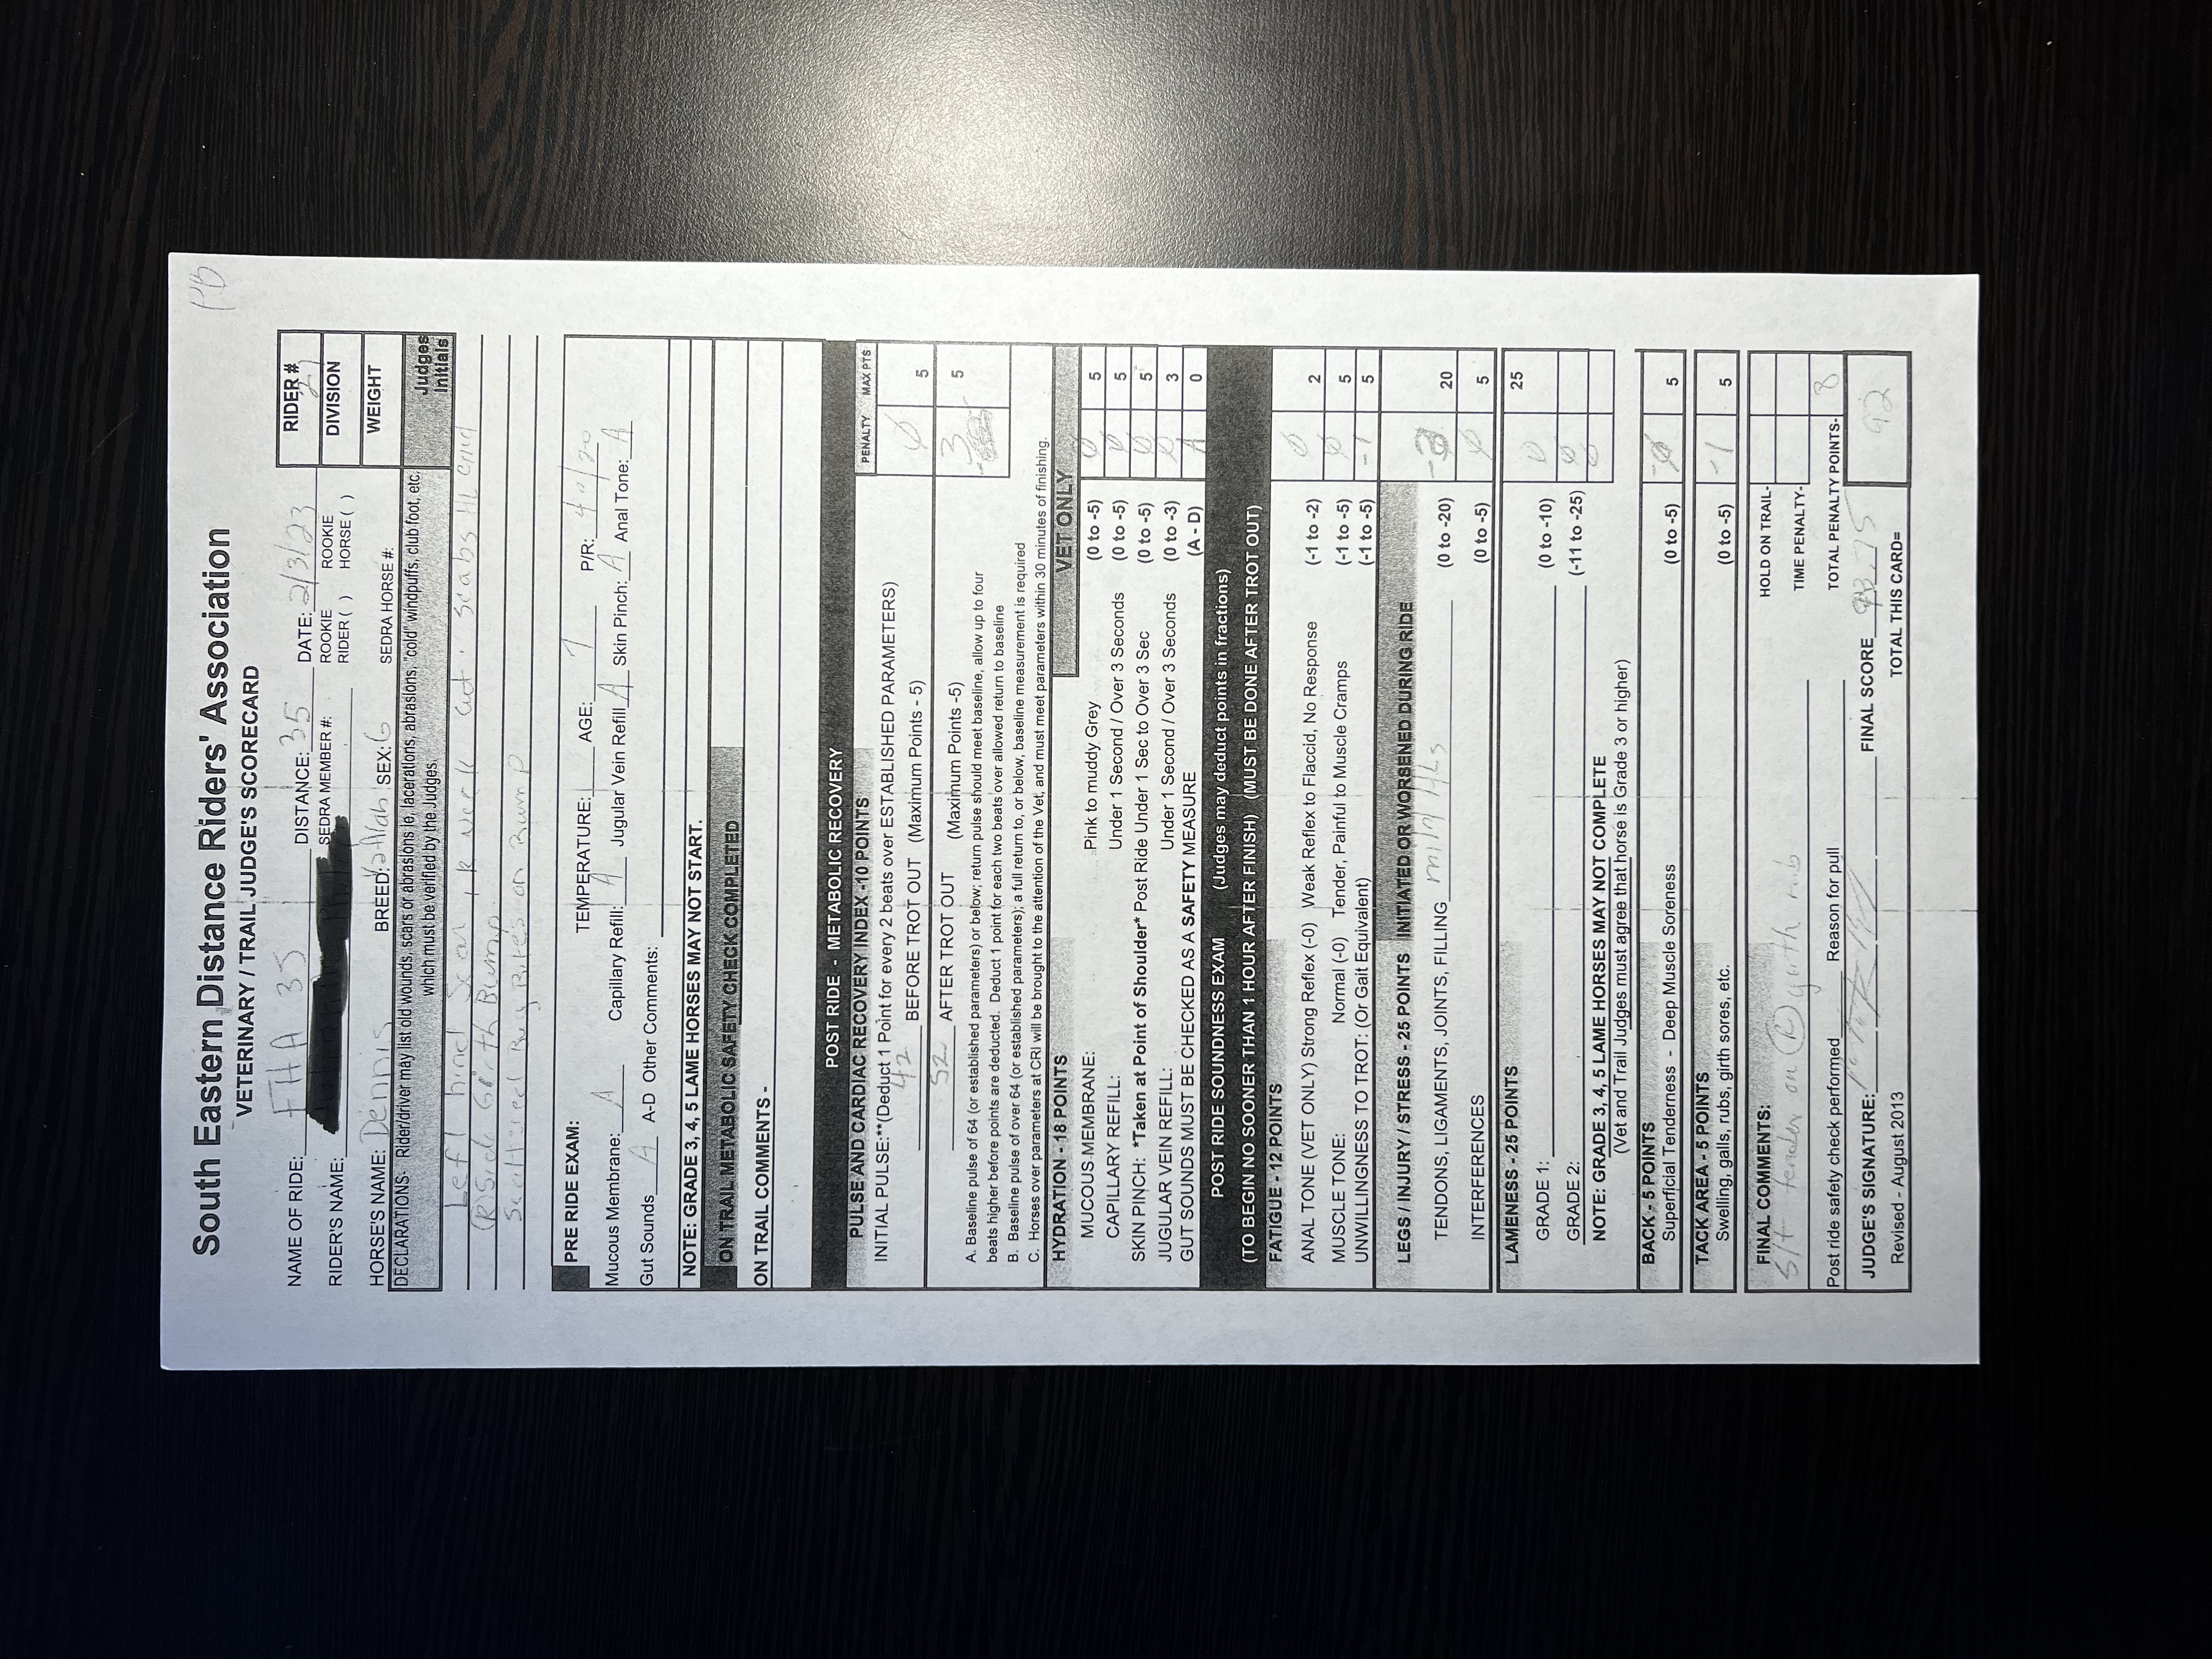 PB
South Eastern Distance Riders' Association
VETERINARY / TRAIL JUDGE'S SCORECARD
NAME OF RIDE: FHA 35 DISTANCE: 35 DATE: 2/3/23 RIDER #
RIDER'S NAME: SEDRA MEMBER #: ROOKIE RIDER ( ) ROOKIE HORSE ( ) DIVISION
HORSE'S NAME: Dennis BREED: 1/2 Arab SEX: G SEDRA HORSE #: WEIGHT
DECLARATIONS- Rider/driver may list old wounds, scars or abrasions ie, lacerations, abrasions, "cold" windpuffs, club foot, etc.
which must be verified by the Judges.
Judges Initials
Left hind Scar, R Neck Cut. Scabs HL
(R) Side Girth Bump
Scattered Bug Bites on Rump
PRE RIDE EXAM: TEMPERATURE: AGE: 7 P/R: 40/20
Mucous Membrane: A Capillary Refill: A Jugular Vein Refill A Skin Pinch: A Anal Tone: A
Gut Sounds A A-D Other Comments:
NOTE: GRADE 3, 4, 5 LAME HORSES MAY NOT START.
ON TRAIL METABOLIC SAFETY CHECK COMPLETED
ON TRAIL COMMENTS -
POST RIDE - METABOLIC RECOVERY
PULSE AND CARDIAC RECOVERY INDEX -10 POINTS PENALTY MAX PTS
INITIAL PULSE:**(Deduct 1 Point for every 2 beats over ESTABLISHED PARAMETERS)
42 BEFORE TROT OUT (Maximum Points - 5) Ø 5
52 AFTER TROT OUT (Maximum Points -5) 3 5
A. Baseline pulse of 64 (or established parameters) or below; return pulse should meet baseline, allow up to four
beats higher before points are deducted. Deduct 1 point for each two beats over allowed return to baseline
B. Baseline pulse of over 64 (or established parameters); a full return to, or below, baseline measurement is required
C. Horses over parameters at CRI will be brought to the attention of the Vet, and must meet parameters within 30 minutes of finishing.
HYDRATION - 18 POINTS VET ONLY
MUCOUS MEMBRANE: Pink to muddy Grey (0 to -5) Ø 5
CAPILLARY REFILL: Under 1 Second / Over 3 Seconds (0 to -5) Ø 5
SKIN PINCH: *Taken at Point of Shoulder* Post Ride Under 1 Sec to Over 3 Sec (0 to -5) Ø 5
JUGULAR VEIN REFILL: Under 1 Second / Over 3 Seconds (0 to -3) Ø 3
GUT SOUNDS MUST BE CHECKED AS A SAFETY MEASURE (A - D) A 0
POST RIDE SOUNDNESS EXAM (Judges may deduct points in fractions)
(TO BEGIN NO SOONER THAN 1 HOUR AFTER FINISH) (MUST BE DONE AFTER TROT OUT)
FATIGUE - 12 POINTS
ANAL TONE (VET ONLY) Strong Reflex (-0) Weak Reflex to Flaccid, No Response (-1 to -2) Ø 2
MUSCLE TONE: Normal (-0) Tender, Painful to Muscle Cramps (-1 to -5) Ø 5
UNWILLINGNESS TO TROT: (Or Gait Equivalent) (-1 to -5) -1 5
LEGS / INJURY / STRESS - 25 POINTS INITIATED OR WORSENED DURING RIDE
TENDONS, LIGAMENTS, JOINTS, FILLING mild HLs (0 to -20) 20
INTERFERENCES (0 to -5) Ø 5
LAMENESS - 25 POINTS 25
GRADE 1: (0 to -10) Ø
GRADE 2: (-11 to -25) Ø
NOTE: GRADE 3, 4, 5 LAME HORSES MAY NOT COMPLETE Ø
(Vet and Trail Judges must agree that horse is Grade 3 or higher)
BACK - 5 POINTS
Superficial Tenderness - Deep Muscle Soreness (0 to -5) -Ø 5
TACK AREA - 5 POINTS
Swelling, galls, rubs, girth sores, etc. (0 to -5) -1 5
FINAL COMMENTS: HOLD ON TRAIL-
slt tender on (R) girth rub TIME PENALTY-
Post ride safety check performed Reason for pull TOTAL PENALTY POINTS- 8
JUDGE'S SIGNATURE: FINAL SCORE 93.75
Revised - August 2013 TOTAL THIS CARD= 92